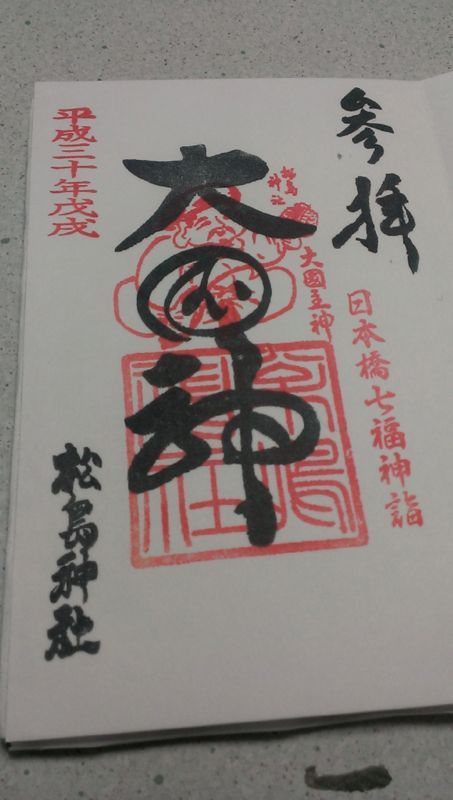 参拝
日本橋七福神詣
大國主神
松島
神社
大国神
平成三十年戊戌
松島神社